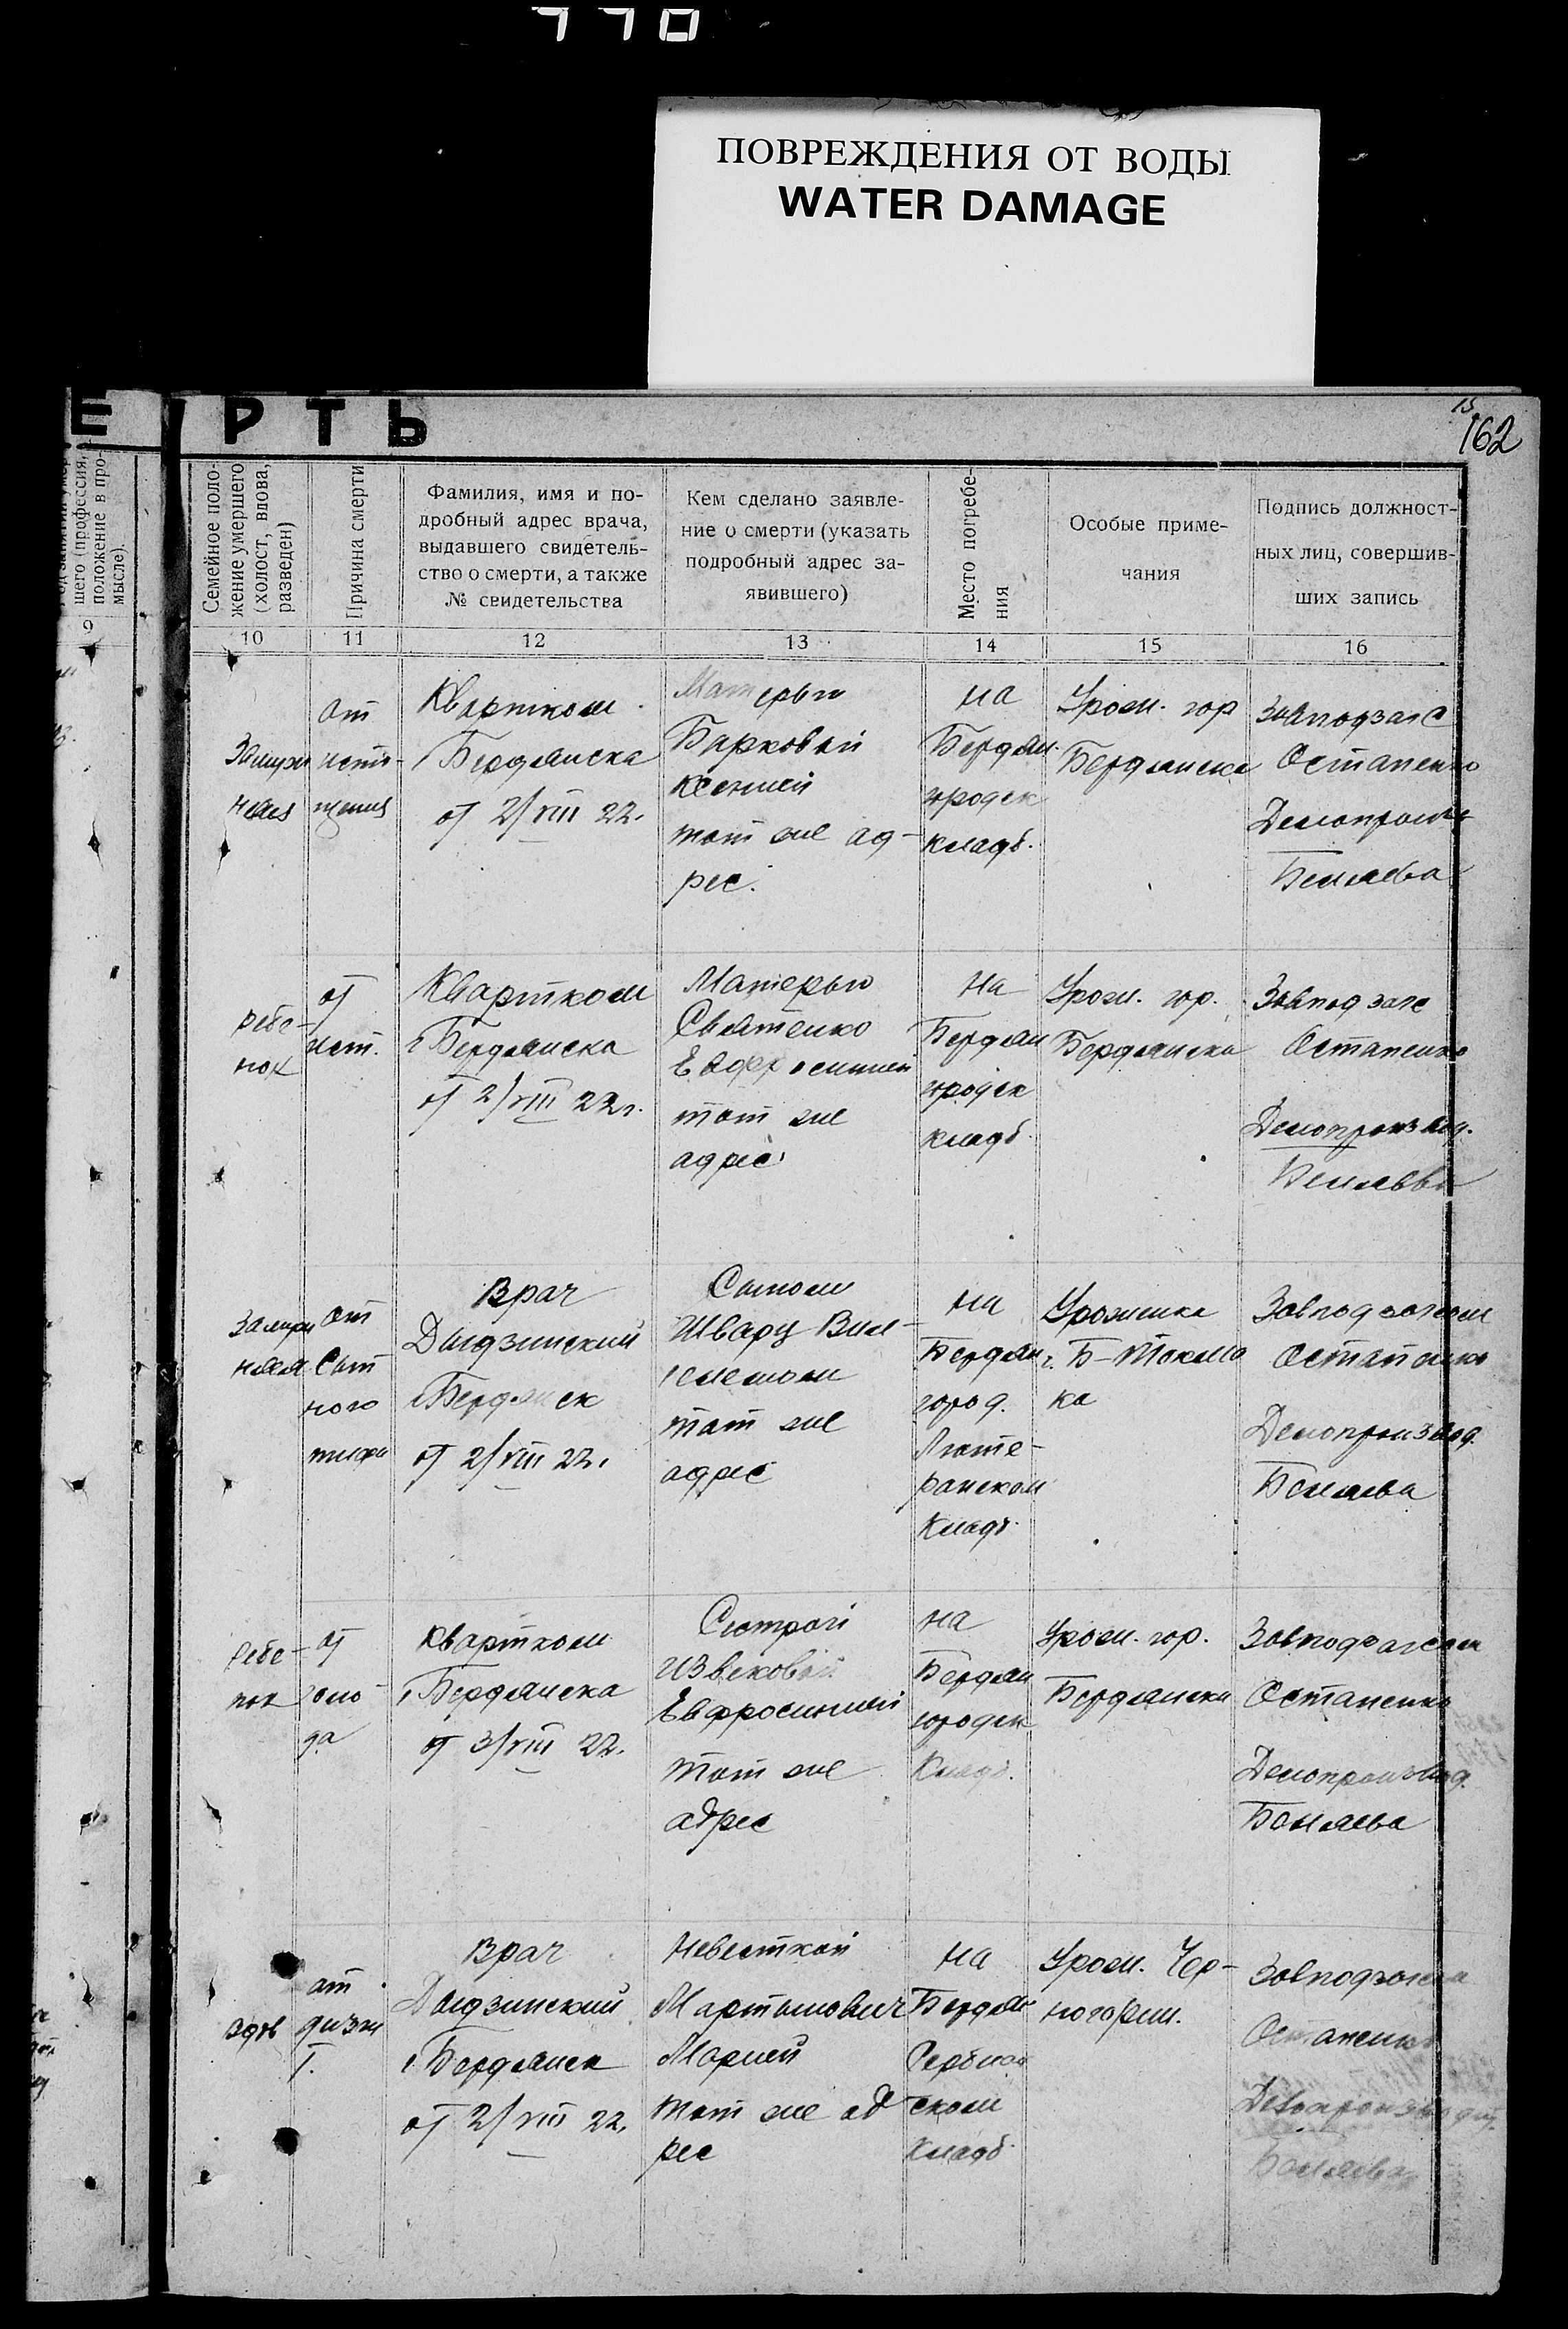 770
ПОВРЕЖДЕНИЯ ОТ ВОДЫ
WATER DAMAGE
Е РТЬ
15
162
шего (профессия,
положение в про-
мысле).
9
Семейное поло-
жение умершего
(холост, вдова,
разведен)
10
Причина смерти
11
Фамилия, имя и по-
дробный адрес врача,
выдавшего свидетель-
ство о смерти, а также
№ свидетельства
12
Кем сделано заявле-
ние о смерти (указать
подробный адрес за-
явившего)
13
Место погребе-
ния
14
Особые приме-
чания
15
Подпись должност-
ных лиц, совершив-
ших запись
16
Замуж
няя
от
исто-
щения
Квартком
г Бердянска
от 2/VIII 22.
Матерью
Барковой
Ксенией
тот же ад-
рес.
на
Бердян.
городск
кладб.
Урож. гор
Бердянска
Завподзагс
Остапенко
Делопроизв
Беляева
ребе-
нок
от
ист.
Квартком
г Бердянска
от 2/VIII 22г.
Матерью
Святенко
Евфросинией
тот же
адрес
на
Бердян
городск
кладб.
Урож. гор.
Бердянска
Завподзагс
Остапенко
Делопроизвод.
Беляева
Замуж
няя
от
Сып
ного
тифа
Врач
Дидзинский
г Бердянск
от 2/VIII 22.
Сыном
Шварц Виль-
гельмом
тот же
адрес
на
Бердян
город.
Люте-
ранском
кладб.
Уроженка
г. Б-Токма
ка
Завподзагсом
Остапенко
Делопроизвод.
Беляева
Ребе-
нок
от
голо-
да
Квартком
г Бердянска
от 3/VIII 22.
Сестрой
Извековой
Евфросинией
тот же
адрес
на
Бердян
городск
Кладб.
Урож. гор.
Бердянска
Завподзагсом
Остапенко
Делопроизвод.
Беляева
вдов
от
дизен
т.
Врач
Дидзинский
г Бердянск
от 2/VIII 22.
Невесткой
Мартынович
Марией
тот же ад
рес
на
Бердян
Сербиан
ском
кладб.
Урож. Чер-
ногории.
Завподзагса
Остапенко
Делопроизводит.
Беляева